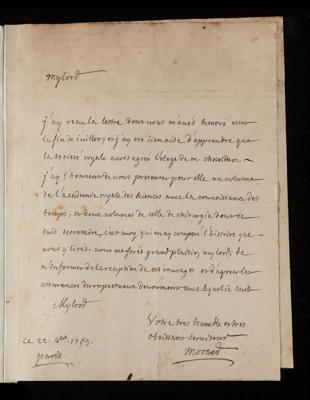 mylord
j'ay recu la lettre dont vous m'avés honoré vers
la fin de juillet, et j'ay eté bien aise d'apprendre que
la société royale avoit agréé l'éloge de mr cheselden
j'ay l'honneur de vous presenter pour elle un volume
de l'academie royale des sciences avec la connoissance des
temps, et deux volumes de celle de chirurgie dont je
suis secretaire, c'est moy qui en ay composé l'histoire que
vous y lirés. vous me ferés grand plaisir, mylord, de
m'informer de la reception de ces ouvrages et d'agreer les
assurances du respectueux devouement avec lequel je suis
Mylord
Votre tres humble et tres
obeissant serviteur
Morand
ce 22. 1753.
paris